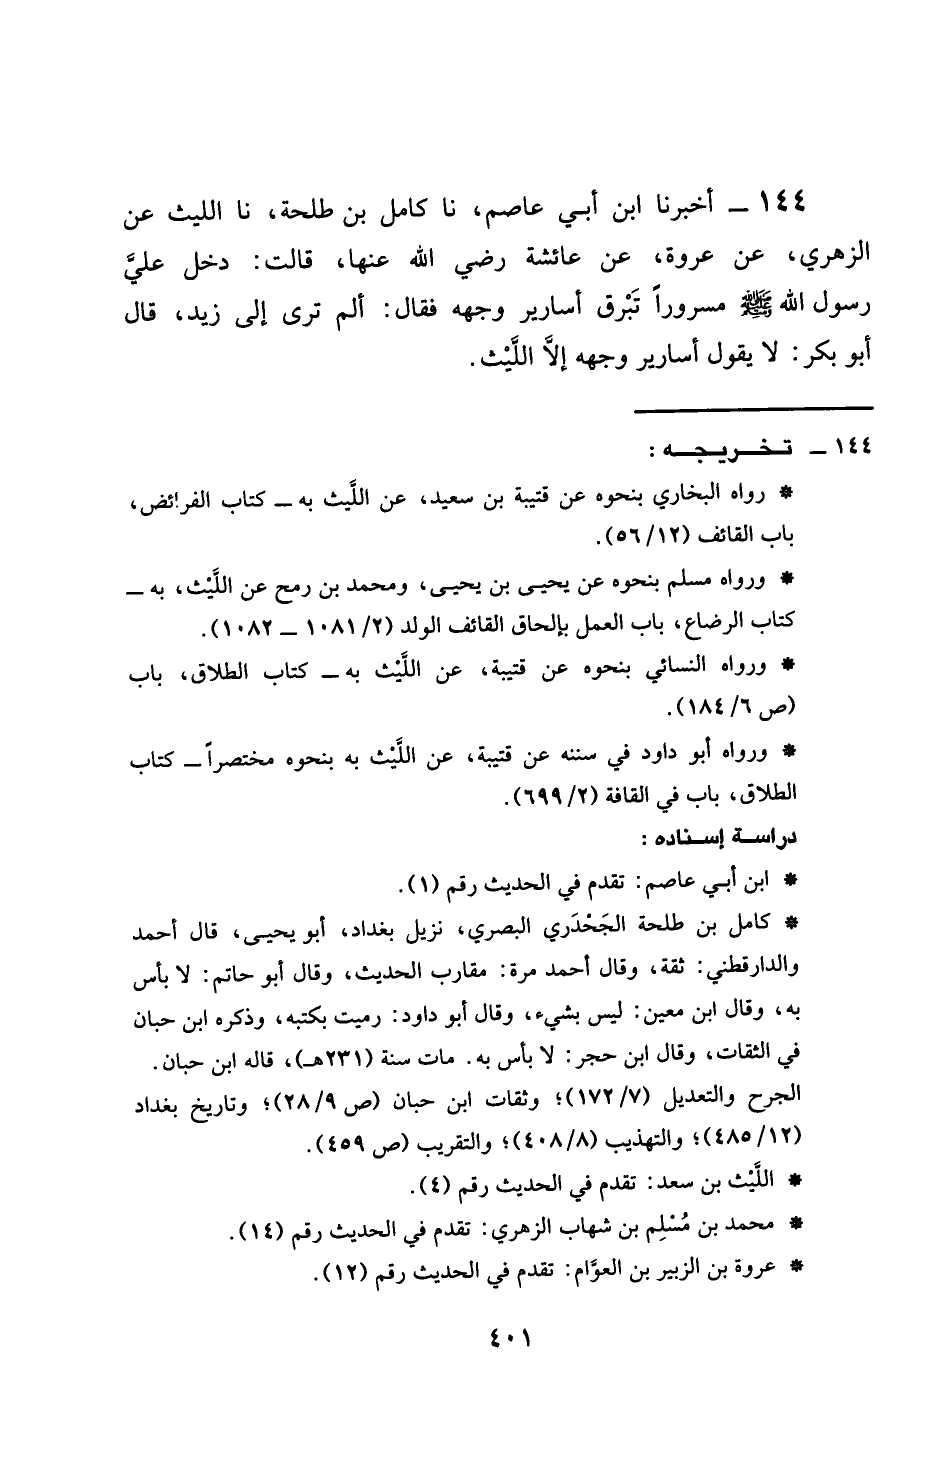 ١٤٤ ــ أخبرنا ابن أبـي عاصم، نا كامل بن طلحة، نا الليث عن
الزهري، عن عروة، عن عائشة رضي الله عنها، قالت: دخل عليَّ
رسول الله ﷺ مسروراً تَبْرق أسارير وجهه فقال: ألم ترى إلى زيد، قال
أبو بكر: لا يقول أسارير وجهه إلاَّ اللَّيْث.
١٤٤ ــ تـخـريـجـه:
* رواه البخاري بنحوه عن قتيبة بن سعيد، عن اللَّيث به ــ كتاب الفرائض،
باب القائف (٥٦/١٢).
* ورواه مسلم بنحوه عن يحيـى بن يحيـى، ومحمد بن رمح عن اللَّيْث، به ــ
كتاب الرضاع، باب العمل بإلحاق القائف الولد (١٠٨١/٢ ــ ١٠٨٢).
* ورواه النسائي بنحوه عن قتيبة، عن اللَّيْث به ــ كتاب الطلاق، باب
(ص ١٨٤/٦).
* ورواه أبو داود في سننه عن قتيبة، عن اللَّيْث به بنحوه مختصراً ــ كتاب
الطلاق، باب في القافة (٦٩٩/٢).
دراسـة إسـناده:
* ابن أبـي عاصم: تقدم في الحديث رقم (١).
* كامل بن طلحة الجَحْدَري البصري، نزيل بغداد، أبو يحيـى، قال أحمد
والدارقطني: ثقة، وقال أحمد مرة: مقارب الحديث، وقال أبو حاتم: لا بأس
به، وقال ابن معين: ليس بشيء، وقال أبو داود: رميت بكتبه، وذكره ابن حبان
في الثقات، وقال ابن حجر: لا بأس به. مات سنة (٢٣١هـ)، قاله ابن حبان.
الجرح والتعديل (١٧٢/٧)؛ وثقات ابن حبان (ص ٢٨/٩)؛ وتاريخ بغداد
(٤٨٥/١٢)؛ والتهذيب (٤٠٨/٨)؛ والتقريب (ص ٤٥٩).
* اللَّيْث بن سعد: تقدم في الحديث رقم (٤).
* محمد بن مُسْلِم بن شهاب الزهري: تقدم في الحديث رقم (١٤).
* عروة بن الزبير بن العوَّام: تقدم في الحديث رقم (١٢).
٤٠١